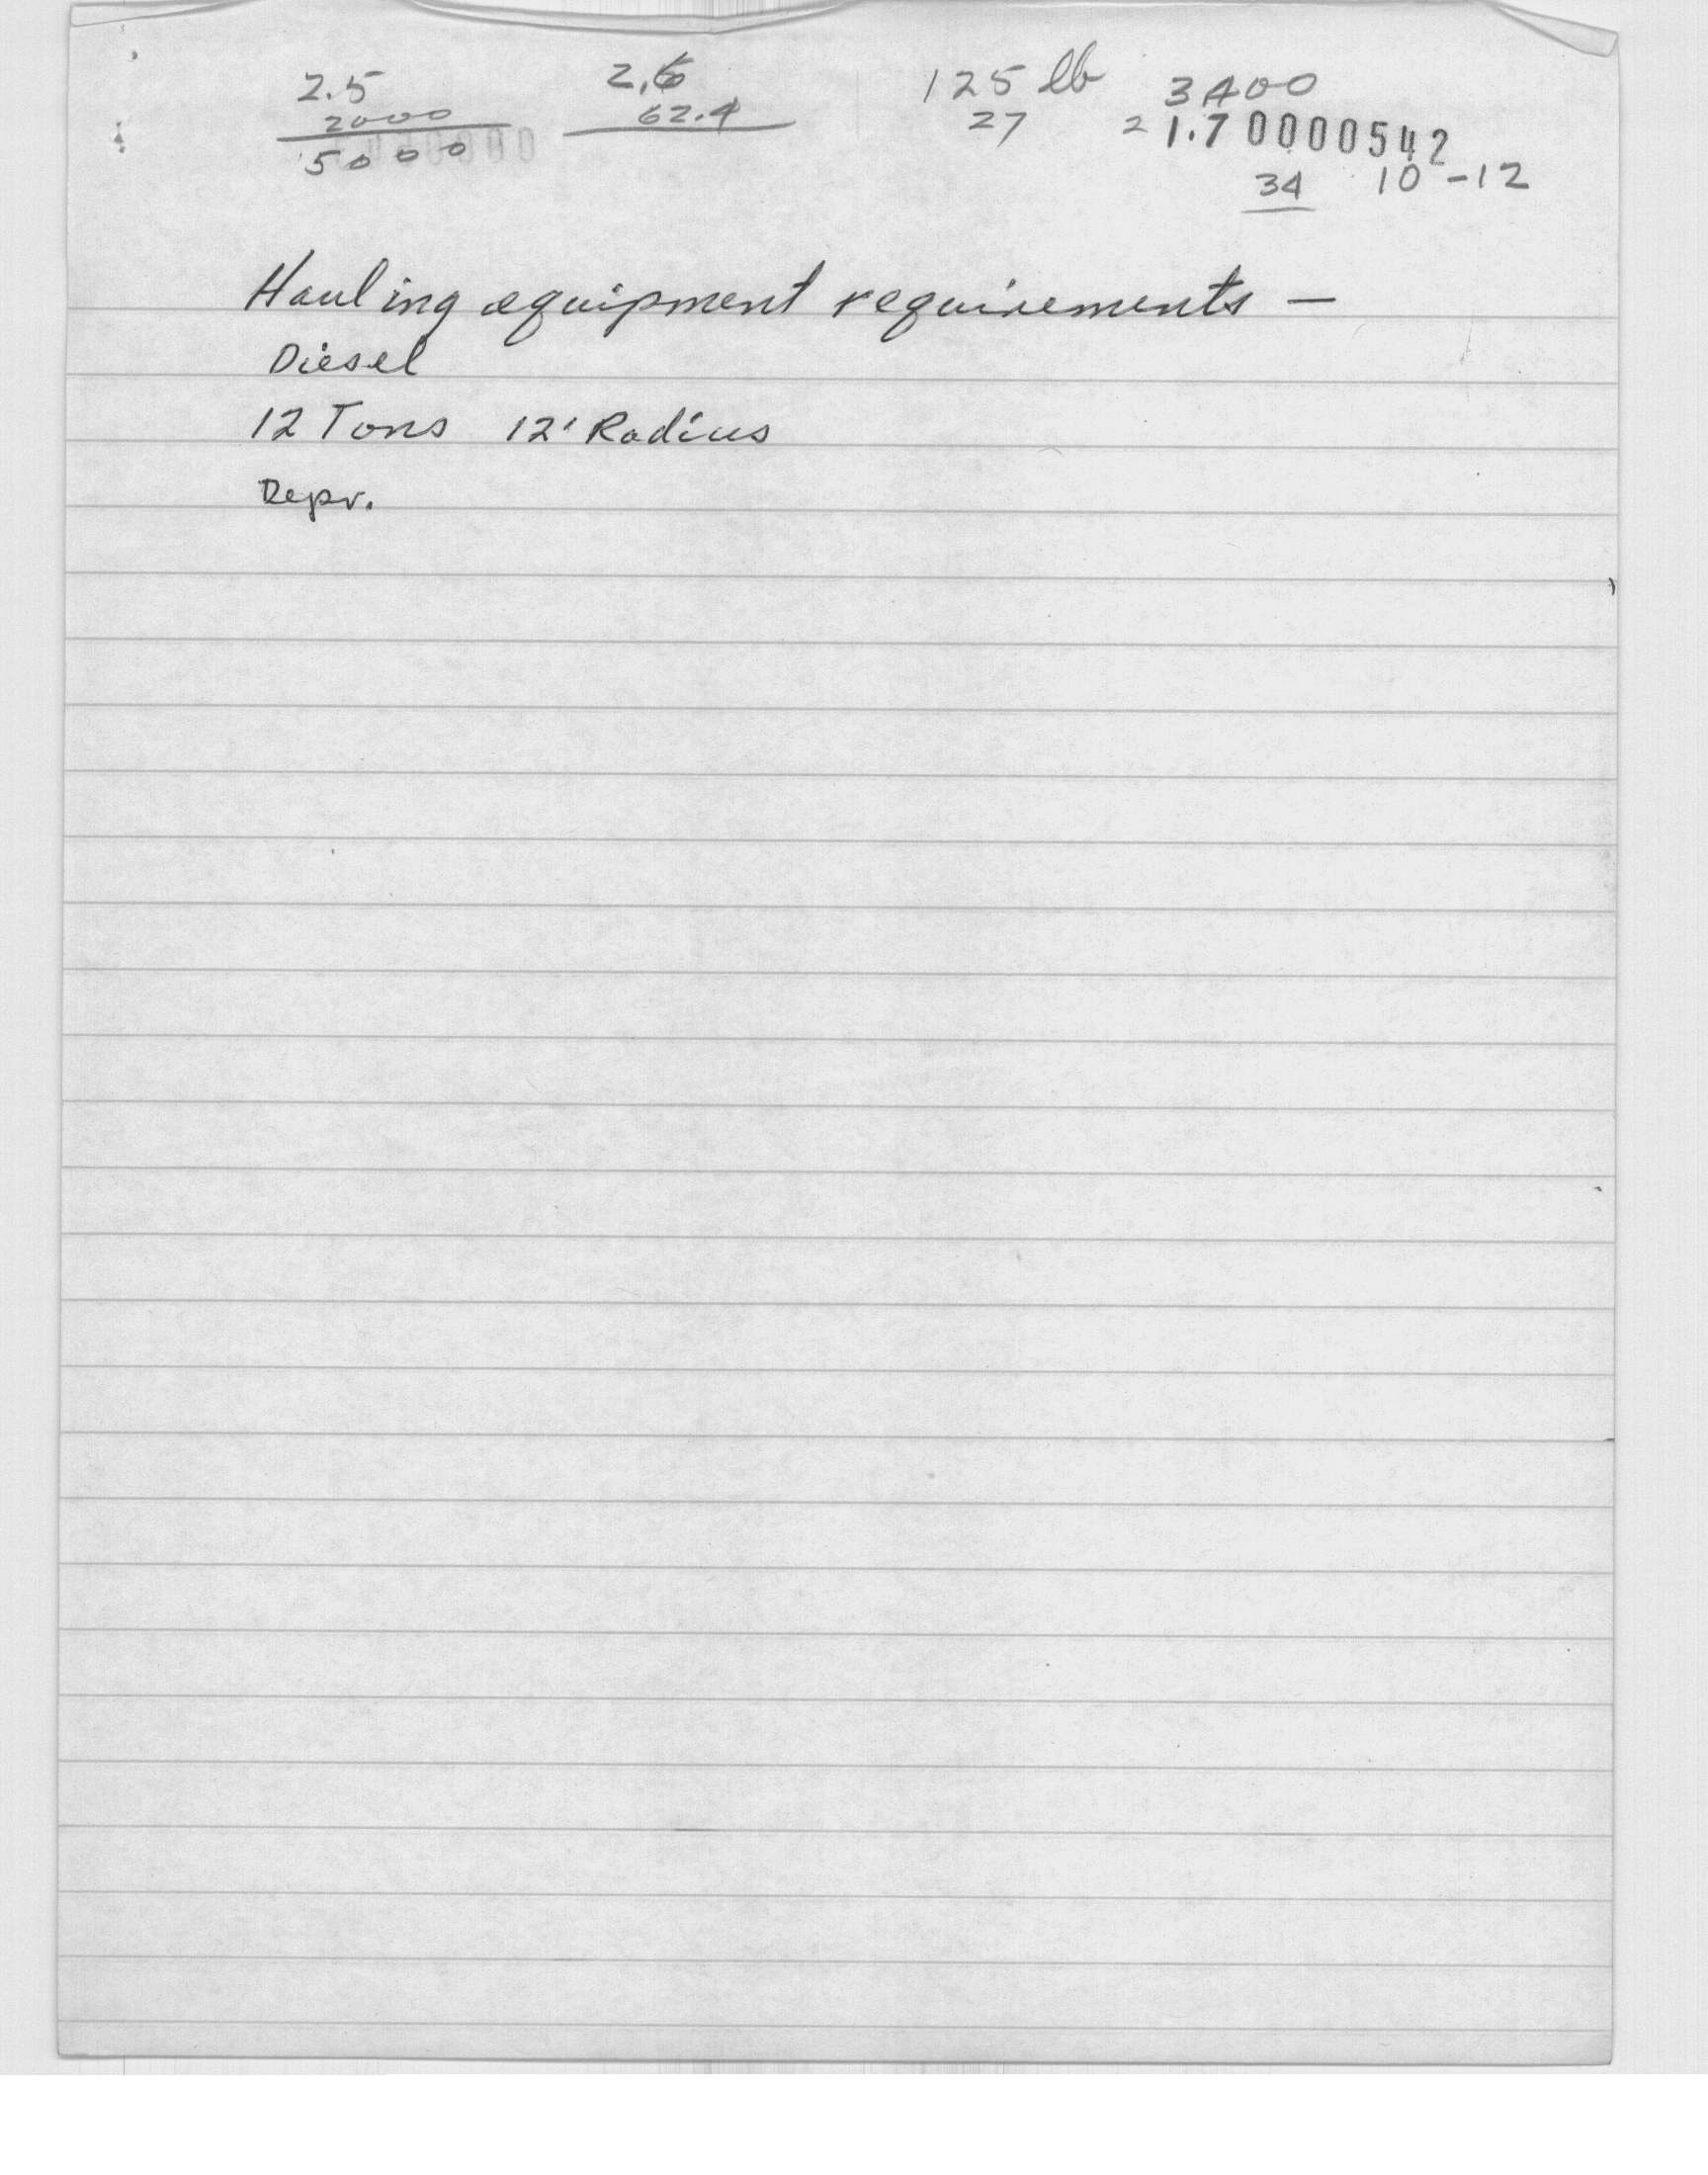 2.5 2.6 125 lb 3400
2000 62.4 27 2 1.7 0000542
5000 34 10-12
Hauling equipment requirements —
Diesel
12 Tons 12' Radius
Depr.